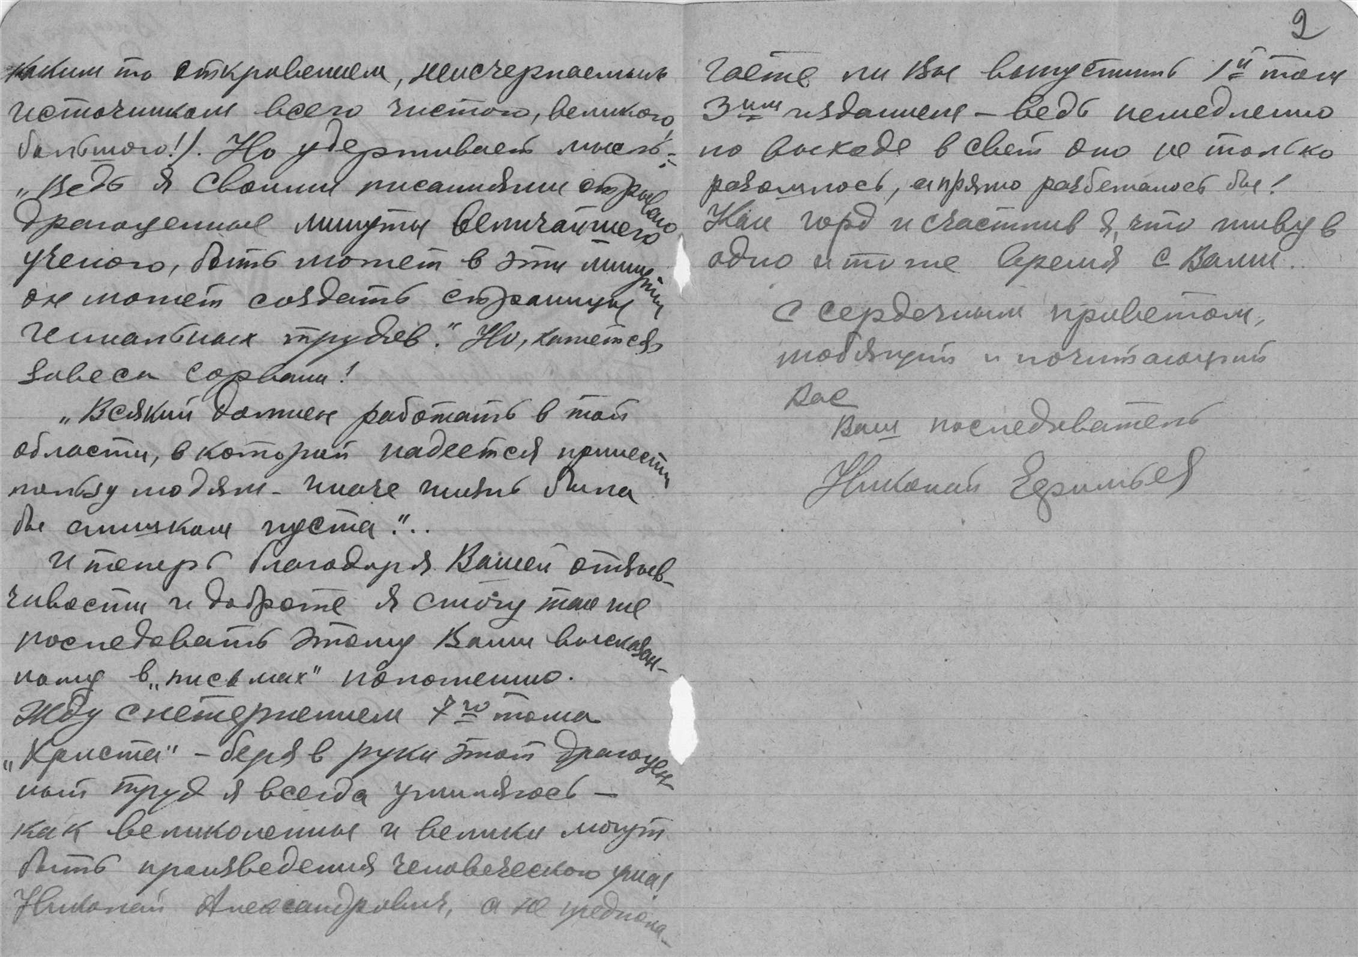 каким то откровением, неисчерпаемым
источником всего чистого, великого,
большого!). Но удерживает мысль:
„Ведь я своими писаниями отрываю
драгоценные минуты величайшего
ученого, быть может в эти минуты
он может создать страницы
гениальных трудов." Но, кажется,
завеса сорвана!
„Всякий должен работать в той
области, в которой надеется принести
пользу людям - иначе жизнь была
бы слишком пуста."..
И теперь благодаря Вашей отзыв-
чивости и доброте я смогу также
последовать этому Вами высказан-
ному в „письмах" положению.
Жду с нетерпением 7го тома
„Христа" – беря в руки этот драгоцен-
ный труд я всегда умиляюсь –
как великолепны и велики могут
быть произведения человеческого ума!
Николай Александрович, а не предпола-
2
гаете ли Вы выпустить 1й том
3им изданием – ведь немедленно
по выходе в свет оно не только
разошлось, а прямо разбежалось бы!
Как горд и счастлив я, что живу в
одно и то же время с Вами..
С сердечным приветом,
любящий и почитающий
Вас
Ваш последователь
Николай